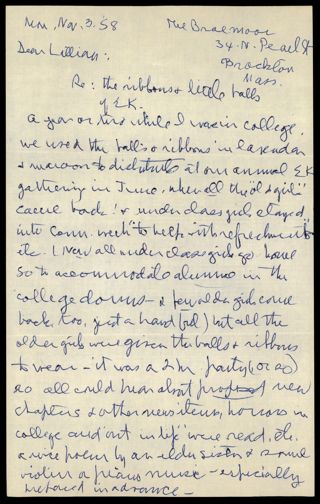 Mon, Nov. 3. '58
The Braemoor
34 N. Pearl St
Brockton
Mass.
Dear Lillian:,
Re: the ribbons & little balls
of E.K.
A year or two while I was in college,
we used the balls & ribbons in lavendar
& maroon to distribute at our annual E.K
gathering in June, when all the old "girls"
came back! & underclass girls stayed
into Com. week to help with refreshments
etc. (Now all underclass girls go home
so to accommodate alumnae in the
college dorms - & few older girls come
back, too, just a handful) but all the
older girls were given the balls & ribbons
to wear - it was a 2 hr party (or so)
so all could hear about new
chapters & other news items, honors in
college and out in 'life' were read, etc.
a nice poem by an elder sister & some
violin & piano music - especially
prepared in advance -